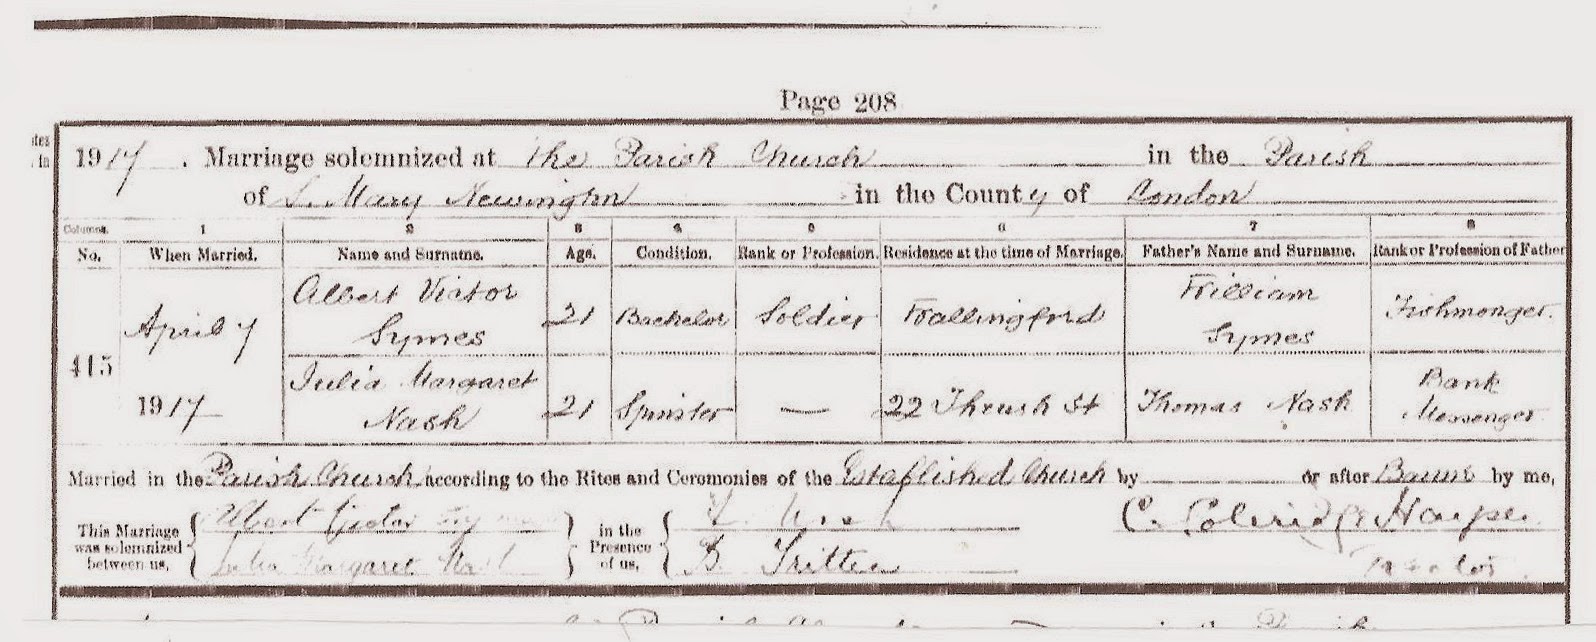 Page 208
1917. Marriage solemnized at the Parish Church in the Parish
of S. Mary Newington in the County of London
Columns. 1 2 3 4 5 6 7 8
No. When Married. Name and Surname. Age. Condition. Rank or Profession. Residence at the time of Marriage. Father's Name and Surname. Rank or Profession of Father
415 April 7 1917 Albert Victor Symes 21 Bachelor Soldier Wallingford William Symes Fishmonger.
Julia Margaret Nash 21 Spinster — 22 Thrush St Thomas Nash Bank Messenger.
Married in the Parish Church according to the Rites and Ceremonies of the Established Church by or after Banns by me,
This Marriage was solemnized between us, Albert Victor Symes in the Presence of us, Nash C. Coleridge Harper
Julia Margaret Nash B. Tritten Rector